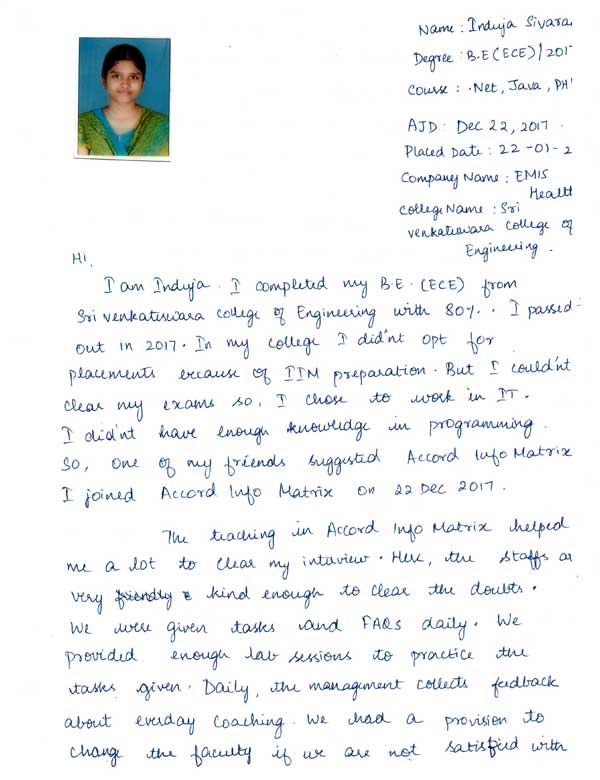 Name : Induja Sivara
Degree : B.E (ECE) / 201
Course : .Net, Java, PH
AJD : Dec 22, 2017 .
Placed Date : 22 - 01 - 2
Company Name : EMIS
Health
College Name : Sri
venkateswara College of
Engineering .
Hi,
I am Induja . I completed my B.E. (ECE) from
Sri venkateswara college of Engineering with 80% . I passed-
out in 2017. In my college I did'nt opt for
placements because of IIM preparation. But I could'nt
clear my exams so, I chose to work in IT.
I did'nt have enough knowledge in programming.
So, one of my friends suggested Accord Info Matrix
I joined Accord Info Matrix on 22 Dec 2017.
The teaching in Accord Info Matrix helped
me a lot to clear my interview. Here, the staffs ar
very friendly & kind enough to clear the doubts.
We were given tasks and FAQs daily. We
provided enough lab sessions to practice the
tasks given. Daily, the management collects feedback
about everday coaching. We had a provision to
change the faculty if we are not satisfied with